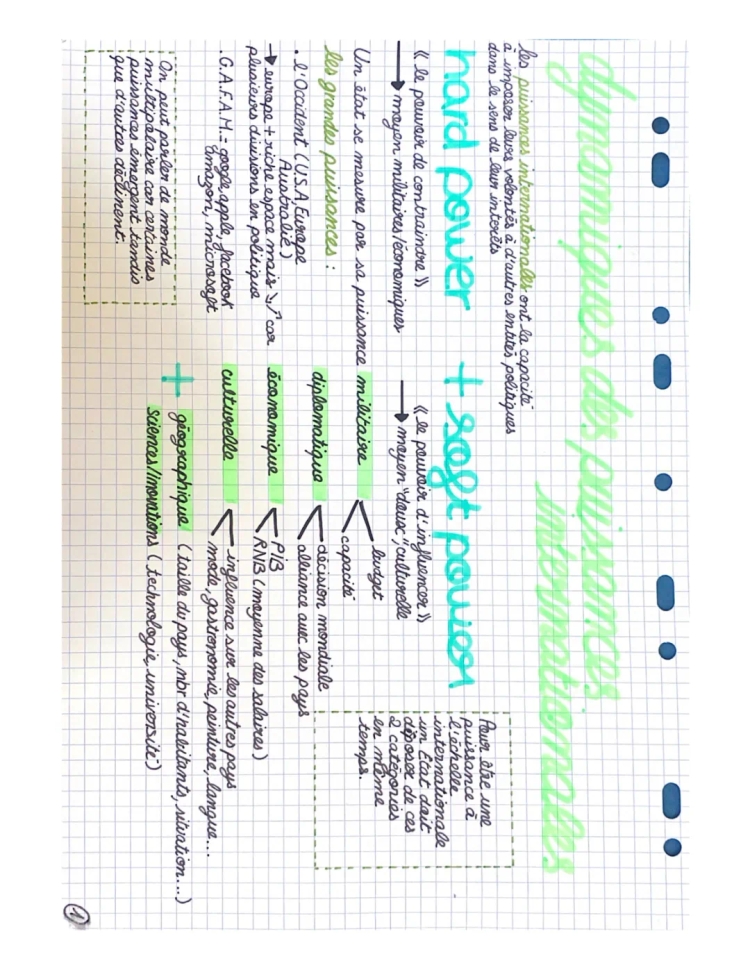 dynamiques des puissances
internationales
les puissances internationales ont la capacité
à imposer leurs volontés à d'autres entités politiques
dans le sens de leur interêts
hard power + soft power
« le pouvoir de contraindre »
→ moyen militaires/économiques
« le pouvoir d'influencer »
→ moyen "doux", culturelle
Pour être une
puissance à
l'échelle
internationale
un État doit
diposer de ces
2 catégories
en même
temps.
Un état se mesure par sa puissance militaire < budget
capacité
diplomatique < décision mondiale
alliance avec les pays
économique < PIB
RNB (moyenne des salaires)
culturelle < influence sur les autres pays
mode, gastronomie, peinture, langue...
+ géographique (taille du pays, nbr d'habitants, situation...)
sciences/innovations (technologie, université)
les grandes puissances :
. l'Occident (U.S.A, Europe
Australie)
→ europe + riche espace mais ↘↗ car
plusieurs divisions en politique
. G.A.F.A.M. - google, apple, facebook
amazon, microsoft
On peut parler de monde
multipolaire car certaines
puissances émergent tandis
que d'autres déclinent.
1